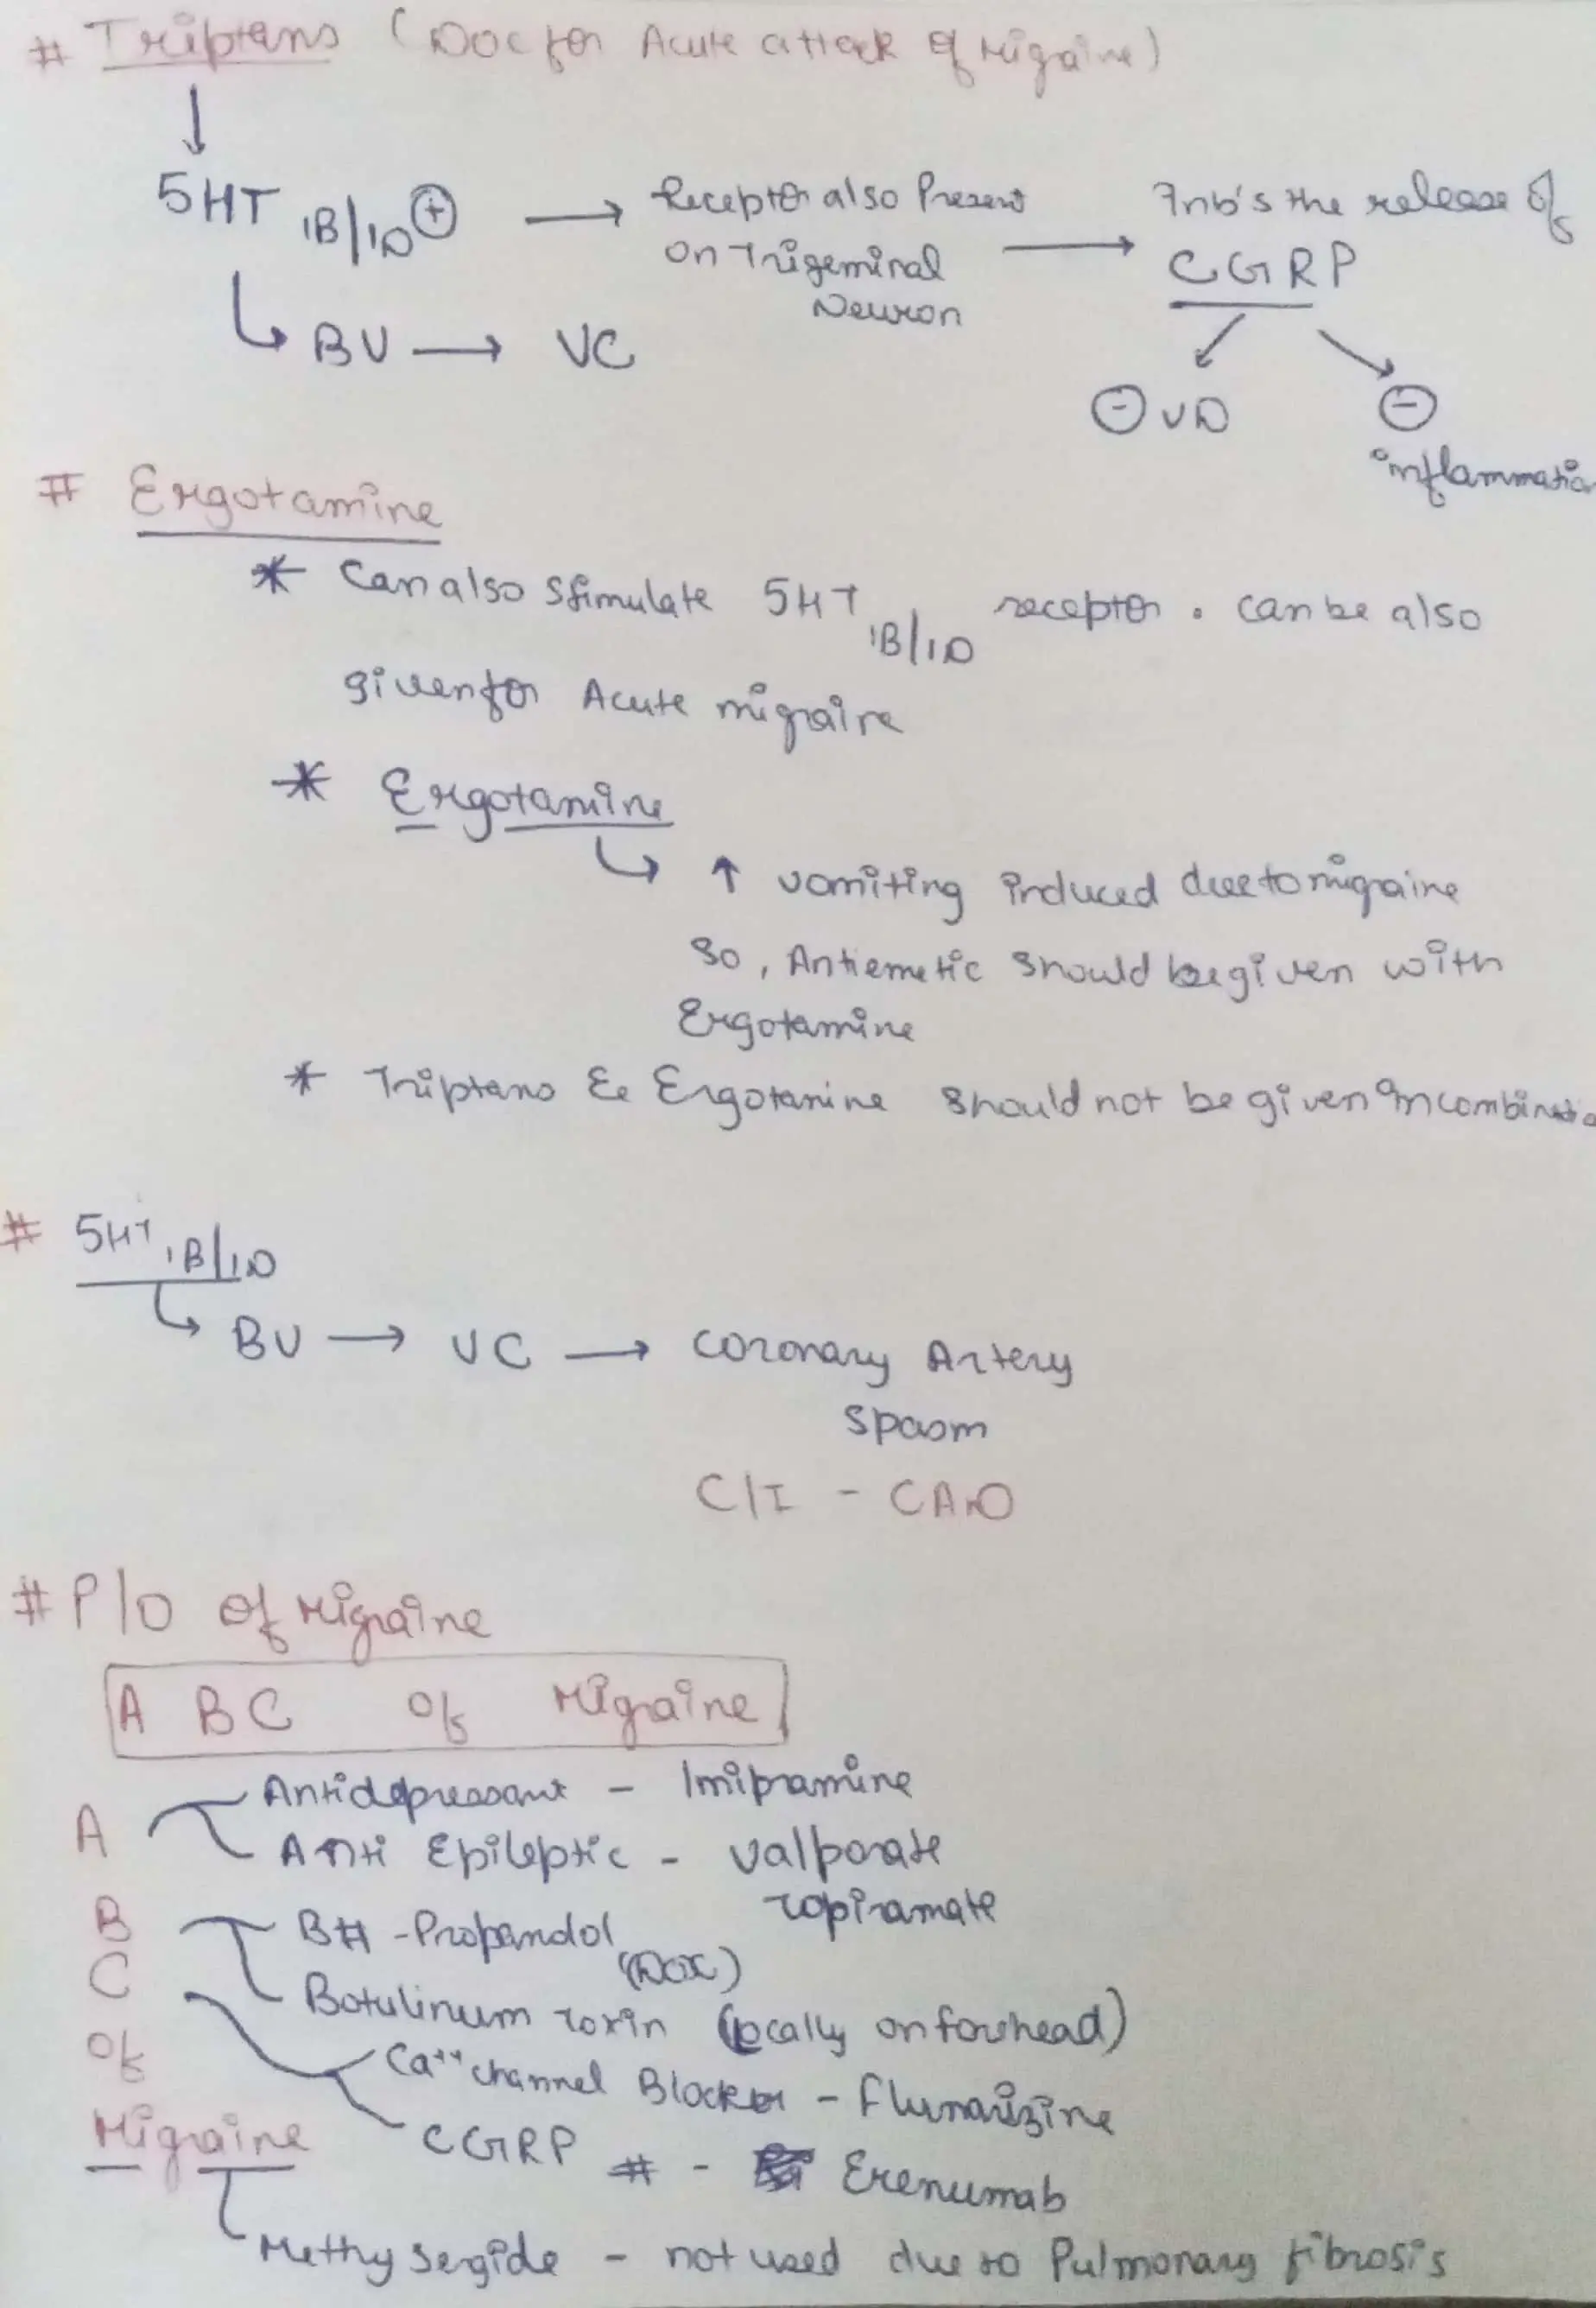 # Triptans (DOC for Acute attack of Migraine)
↓
5HT 1B/1D ⊕ → Receptor also Present on Trigeminal Neuron → Inb's the release of CGRP
↳ BV → VC
⊖ VD ⊖ inflammation
# Ergotamine
* Can also stimulate 5HT 1B/1D receptor. can be also
given for Acute migraine
* Ergotamine
↳ ↑ vomiting induced due to migraine
So, Antiemetic should be given with
Ergotamine
* Triptans & Ergotamine should not be given in combinatio
# 5HT 1B/1D
↳ BV → VC → Coronary Artery
Spasm
C/I - CAD
# P/O of Migraine
A BC of Migraine
A Antidepressant - Imipramine
Anti Epileptic - Valporate
Topiramate
B B# - Propandol
(DOC)
C Botulinum Toxin (locally on forehead)
of Ca++ channel Blocker - Flunarizine
Migraine CGRP # - Erenumab
Methy sergide - not used due to Pulmonary fibrosis